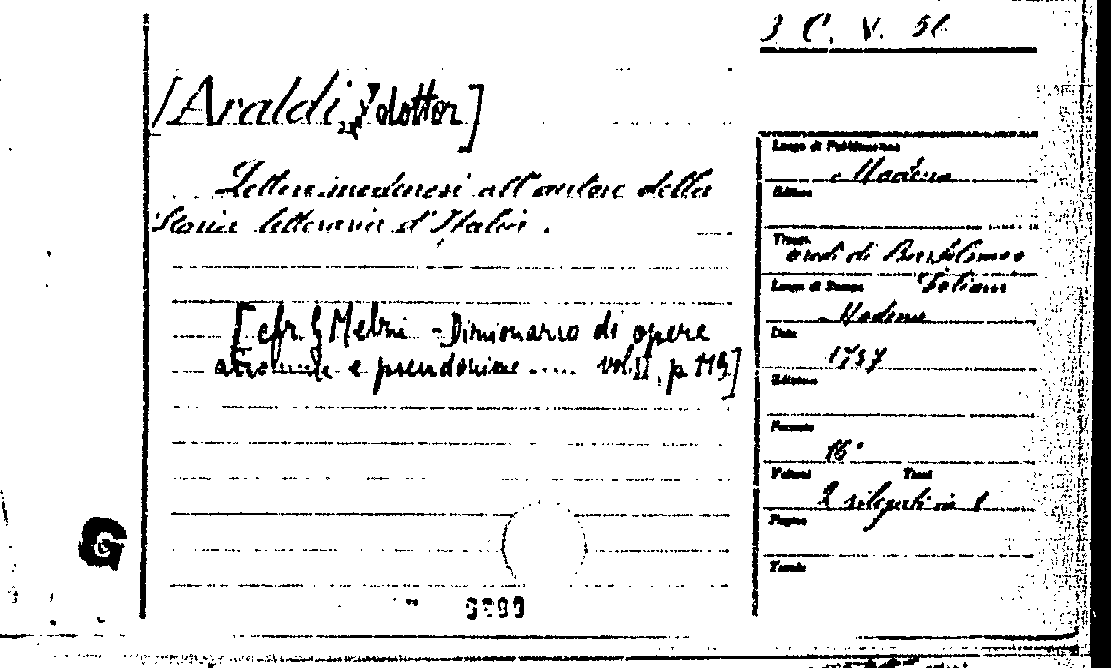 3 C. V. 56
[Araldi, dottor]
Lettere modenesi all'autore della
Storia letteraria d'Italia.
[cfr. G Melzi - Dizionario di opere
anonime e pseudonime ..... vol. II, p 119]
Luogo di Pubblicazione
Modena
Editore
Tipogr.
eredi di Bartolomeo
Soliani
Luogo di Stampa
Modena
Data
1757
Edizione
Formato
16°
Volumi Tomi
2 rilegati in 1
Pagine
Tavole
G